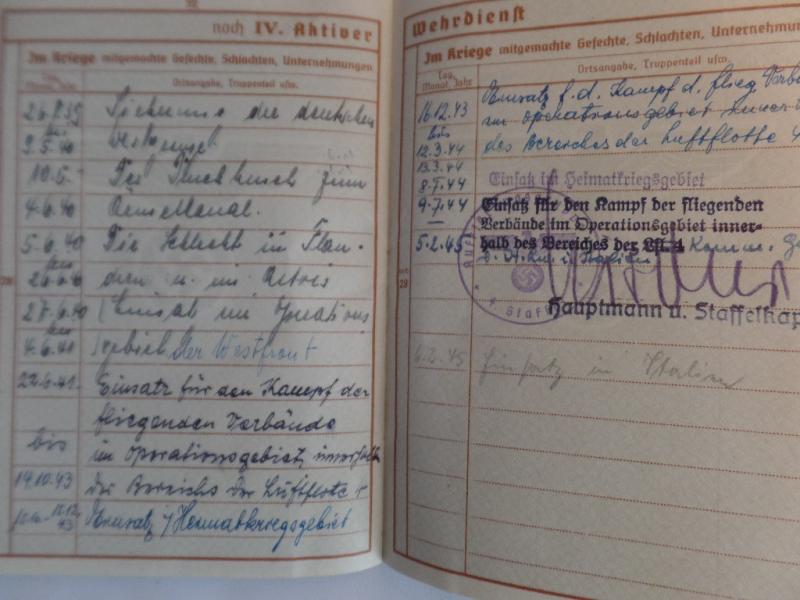 32
noch IV. Aktiver
Im Kriege mitgemachte Gefechte, Schlachten, Unternehmungen
Tag, Monat, Jahr
Ortsangabe, Truppenteil usw.
26.8.39 Sicherung der deutschen
bis
9.5.40 Westgrenze
10.5.- Der Durchbruch zum
4.6.40 Kanal.
5.6.40 Die Schlacht in Flan-
bis
dern u. im Artois
27.6.40 Einsatz im Operations
bis
gebiet der Westfront
22.6.41. Einsatz für den Kampf der
fliegenden Verbände
bis im Operationsgebiet innerhalb
14.10.43 des Bereichs der Luftflotte
Einsatz i/Heimatkriegsgebiet
Wehrdienst
Im Kriege mitgemachte Gefechte, Schlachten, Unternehmungen
Tag, Monat, Jahr
Ortsangabe, Truppenteil usw.
16.12.43 Einsatz f. d. Kampf d. flieg. Verbä
bis im Operationsgebiet inner
12.3.44 des Bereiches der Luftflotte 4
13.3.44
8.7.44 Einsatz im Heimatkriegsgebiet
9.7.44 Einsatz für den Kampf der fliegenden
— Verbände im Operationsgebiet inner-
5.2.45 halb des Bereiches der Lfl. 4 Komm. Ge
d. Italien
29
Hauptmann u. Staffelkap
6.2.45 Einsatz in Italien